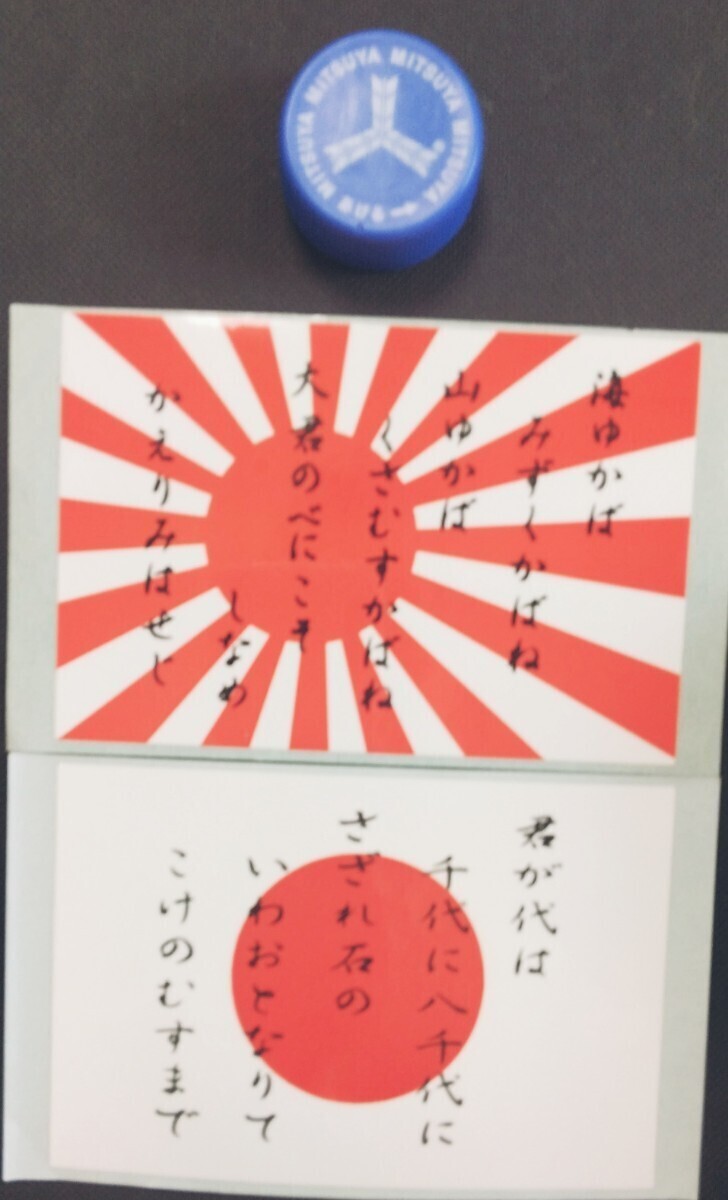 MITSUYA MITSUYA MITSUYA MITSUYA
海ゆかば
みずくかばね
山ゆかば
くさむすかばね
大君のべにこそ
しなめ
かえりみはせじ
君が代は
千代に八千代に
さざれ石の
いわおとなりて
こけのむすまで